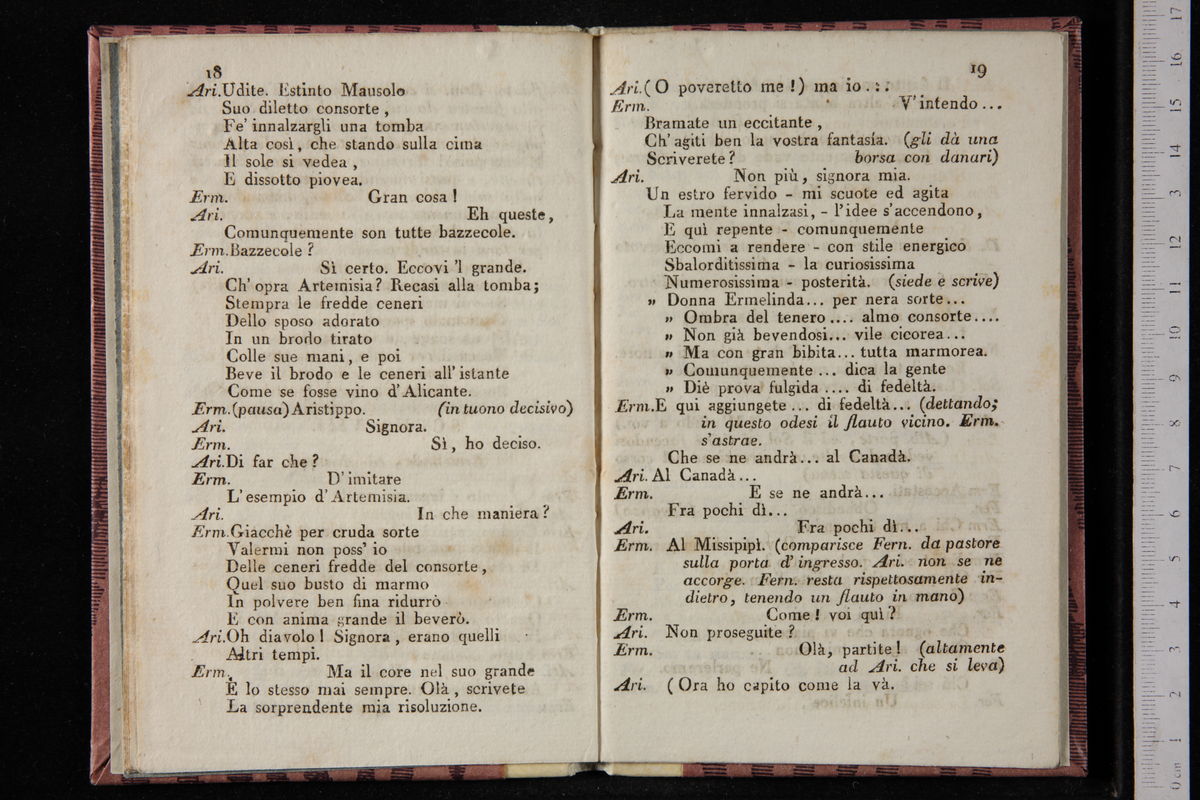 18
Ari.Udite. Estinto Mausolo
Suo diletto consorte,
Fe' innalzargli una tomba
Alta così, che stando sulla cima
Il sole si vedea,
E dissotto piovea.
Erm. Gran cosa!
Ari. Eh queste,
Comunquemente son tutte bazzecole.
Erm.Bazzecole?
Ari. Sì certo. Eccovi 'l grande.
Ch' opra Artemisia? Recasi alla tomba;
Stempra le fredde ceneri
Dello sposo adorato
In un brodo tirato
Colle sue mani, e poi
Beve il brodo e le ceneri all' istante
Come se fosse vino d'Alicante.
Erm.(pausa) Aristippo. (in tuono decisivo)
Ari. Signora.
Erm. Sì, ho deciso.
Ari.Di far che?
Erm. D' imitare
L' esempio d'Artemisia.
Ari. In che maniera?
Erm.Giacchè per cruda sorte
Valermi non poss' io
Delle ceneri fredde del consorte,
Quel suo busto di marmo
In polvere ben fina ridurrò
E con anima grande il beverò.
Ari.Oh diavolo! Signora, erano quelli
Altri tempi.
Erm. Ma il core nel suo grande
È lo stesso mai sempre. Olà, scrivete
La sorprendente mia risoluzione.
19
Ari.( O poveretto me!) ma io . : .
Erm. V' intendo ...
Bramate un eccitante,
Ch' agiti ben la vostra fantasia. (gli dà una
Scriverete? borsa con danari)
Ari. Non più, signora mia.
Un estro fervido - mi scuote ed agita
La mente innalzasi, - l'idee s'accendono,
E quì repente - comunquemente
Eccomi a rendere - con stile energico
Sbalorditissima - la curiosissima
Numerosissima - posterità. (siede e scrive)
„ Donna Ermelinda... per nera sorte...
„ Ombra del tenero .... almo consorte....
„ Non già bevendosi... vile cicorea...
„ Ma con gran bibita... tutta marmorea.
„ Comunquemente ... dica la gente
„ Diè prova fulgida .... di fedeltà.
Erm.E qui aggiungete ... di fedeltà... (dettando;
in questo odesi il flauto vicino. Erm.
s'astrae.
Che se ne andrà... al Canadà.
Ari. Al Canadà...
Erm. E se ne andrà...
Fra pochi dì...
Ari. Fra pochi dì...
Erm. Al Missipipì. (comparisce Fern. da pastore
sulla porta d' ingresso. Ari. non se ne
accorge. Fern. resta rispettosamente in-
dietro, tenendo un flauto in mano)
Erm. Come! voi quì?
Ari. Non proseguite?
Erm. Olà, partite! (altamente
ad Ari. che si leva)
Ari. (Ora ho capito come la và.
0 cm 1 2 3 4 5 6 7 8 9 10 11 12 13 14 15 16 17